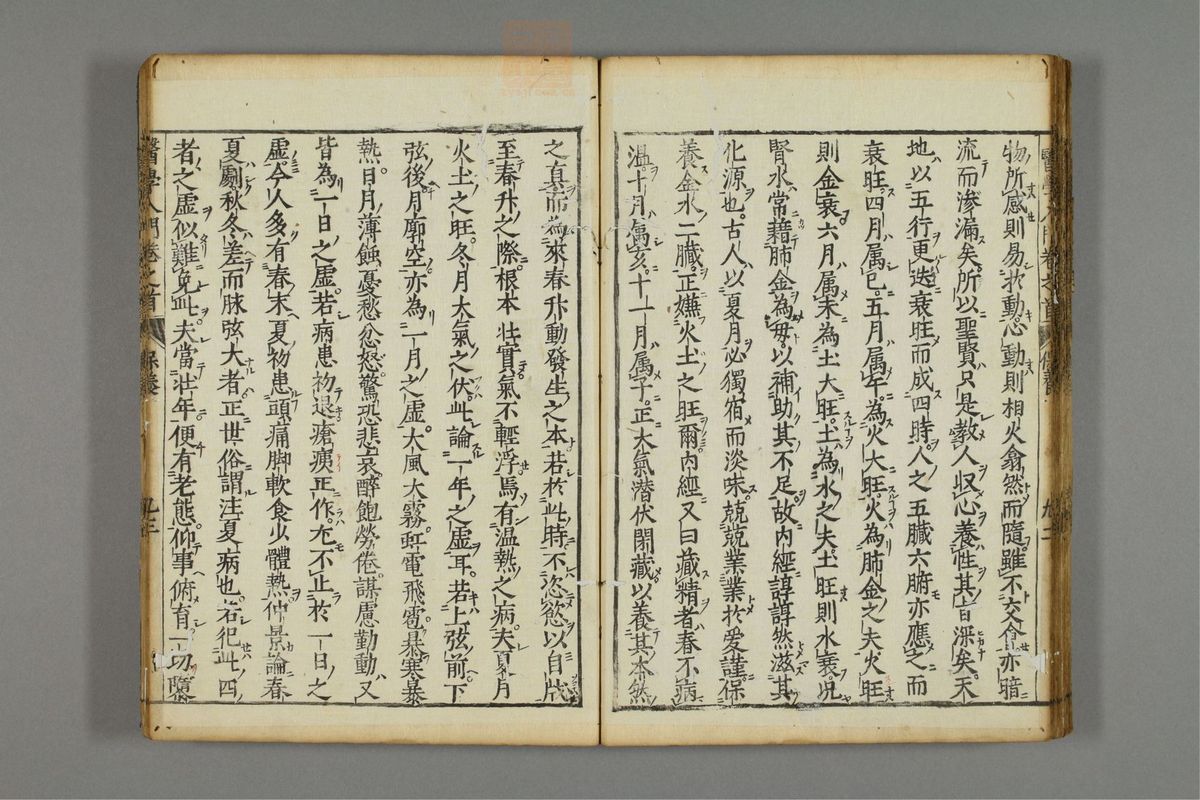 物所感則易於動心動則相火翕然而隨雖不交會亦暗
流而滲漏矣所以聖賢只是教人収心養性其旨深矣天
地以五行更迭衰旺而成四時人之五臟六腑亦應之而
衰旺四月属巳五月属午為火大旺火為肺金之夫火旺
則金衰六月属未為土大旺土為水之夫土旺則水衰況
腎水常藉肺金為母以補助其不足故内經諄諄然滋其
化源也古人以夏月必獨宿而淡味兢兢業業於愛謹保
養金水二臟正嫌火土之旺爾内經又曰藏精者春不病
温十月属亥十一月属子正大氣潜伏閉藏以養其本然
之真而為來春升動發生之本若於此時不恣慾以自戕
至春升之際根本壮實氣不輕浮焉有温熱之病夫夏月
火土之旺冬月大氣之伏此論一年之虚耳若上弦前下
弦後月廓空亦為一月之虚大風大霧虹電飛雹暴寒暴
熱日月薄蝕憂愁忿怒驚恐悲哀醉飽勞倦謀慮勤動又
皆為一日之虚若病患初退瘡痍正作尤不止於一日之
虚今人多有春末夏初患頭痛脚軟食少體熱仲景論春
夏劇秋冬差而脉弦大者正世俗謂注夏病也若犯此四
者之虚似難免此夫當壮年便有老態仰事俯育一切隳
醫學入門卷之首 保養 九三